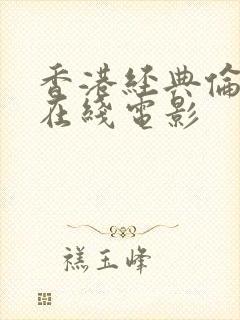 香港经典倫
在綫電影
禚玉峰